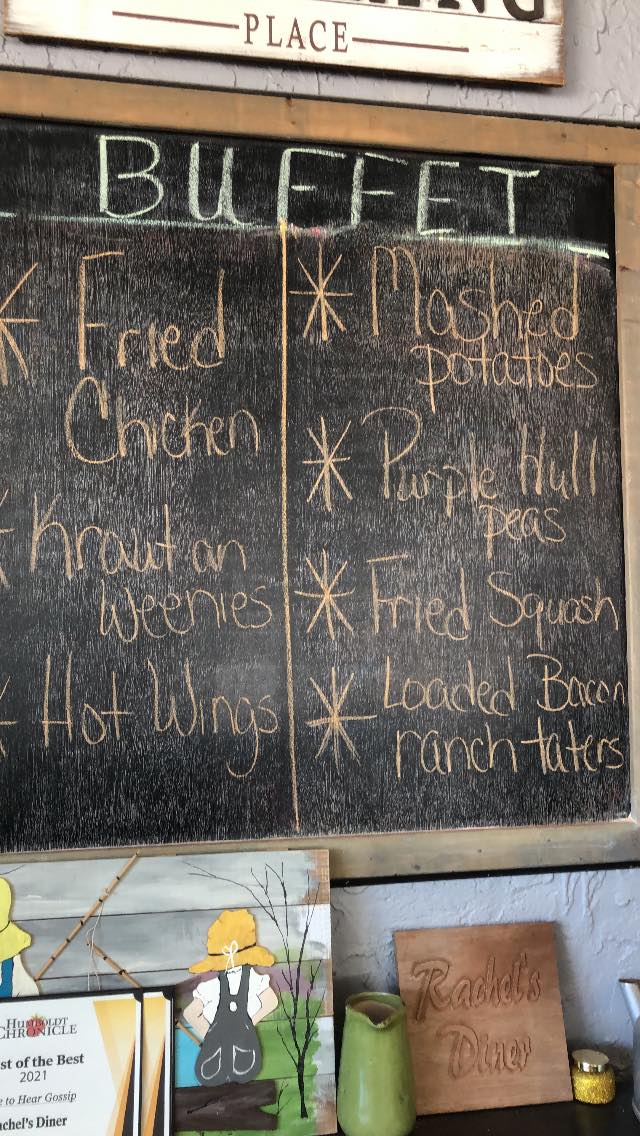 PLACE
BUFFET
* Fried
Chicken
* Kraut an
Weenies
* Hot Wings
* Mashed
potatoes
* Purple Hull
peas
* Fried Squash
* Loaded Bacon
ranch taters
HUMBOLDT
CHRONICLE
st of the Best
2021
e to Hear Gossip
achel's Diner
Rachel's
Diner